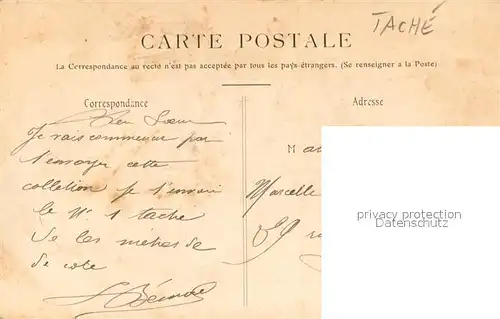 TACHÉ
CARTE POSTALE
La Correspondance au recto n'est pas acceptée par tous les pays étrangers. (Se renseigner a la Poste)
Correspondance
Adresse
Chere Soeur
Je vais commencer par
t'envoyer cette
colletion je t'envoi
le N° 1 tache
de
Marcelle
59
privacy protection
Datenschutz